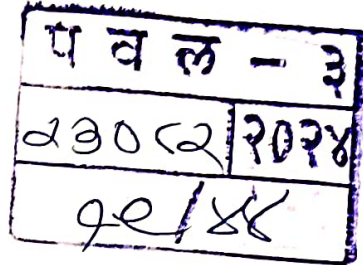 प व ल - ३
२३०८२ २०२४
१९/४४